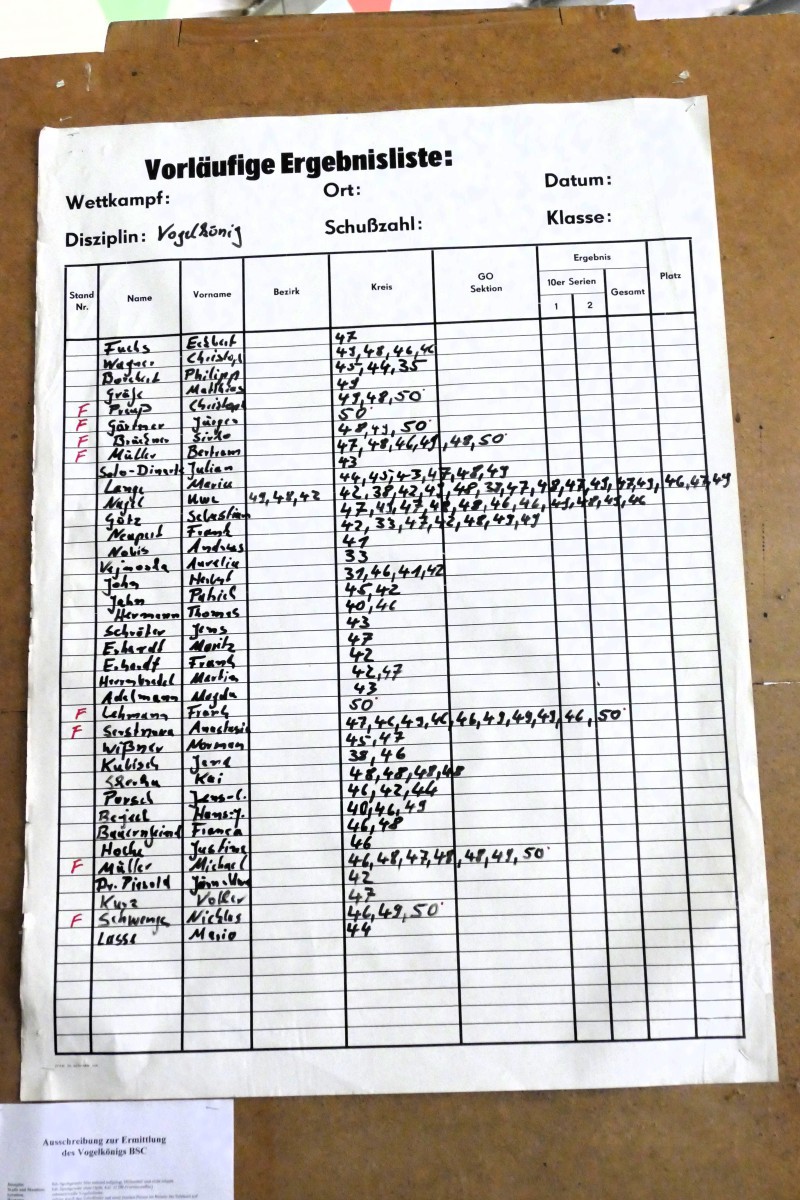 Vorläufige Ergebnisliste:
Wettkampf: Ort: Datum:
Disziplin: Vogelkönig Schußzahl: Klasse:
Stand Nr. Name Vorname Bezirk Kreis GO Sektion Ergebnis 10er Serien 1 2 Gesamt Platz
Fuchs Eckbert 47
Wagner Christoph 49,48,46,46
Philipp 45,44,35
Gräfe Matthias 49
F Preuß Christoph 49,48,50
F Gärtner Jürgen 50
F Brückner Sirko 48,49,50
F Müller Bertram 47,48,46,49,48,50
Julian 43
Lange Mario 44,45,43,47,48,49
Nagel Uwe 49,48,42
Götz Sebastian
Neupert Frank 42,33,47,42,48,49,49
Nobis Andreas 41
Aurelia 33
John 31,46,41,42
Jahn Patrick 45,42
Hermann Thomas 40,46
Schröter Jens 43
Erhardt Moritz 47
Erhardt Frank 42
Martin 42,47
Adelmann Magda 43
F Lehmann Frank 50
F Anastasia 47,46,49,46,46,49,49,49,46,50
Wißner Norman 45,47
Kubisch Jens 38,46
Kai 48,48,48,48
Porsch 46,42,44
Hans-J. 40,46,49
Bauernfeind Franca 46,48
Hocke Justine 46
F Müller Michael 46,48,47,48,48,49,50
42
Kurz Volker 47
F Schwenge Nicklas 46,49,50
Lasse Mario 44
Ausschreibung zur Ermittlung
des Vogelkönigs BSC